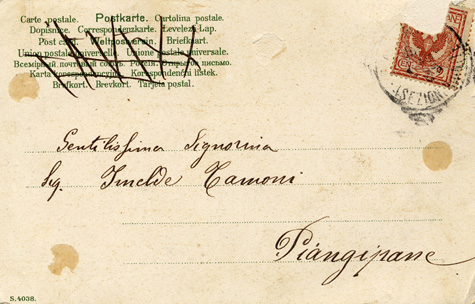 Carte postale. Postkarte. Cartolina postale.
Dopisnice. Correspondenzkarte. Levelezö-Lap.
Post card. Weltpostverein. Briefkaart.
Union postale universelle. Unione postale universale.
Всемірный почтовый союзъ. Россія. Открытое письмо.
Karta korespondencyjna. Korespondenční lístek.
Brefkort. Brevkort. Tarjeta postal.
Gentilissima Signorina
Sig. Imelde Tamoni
Piangipane
S. 4038.